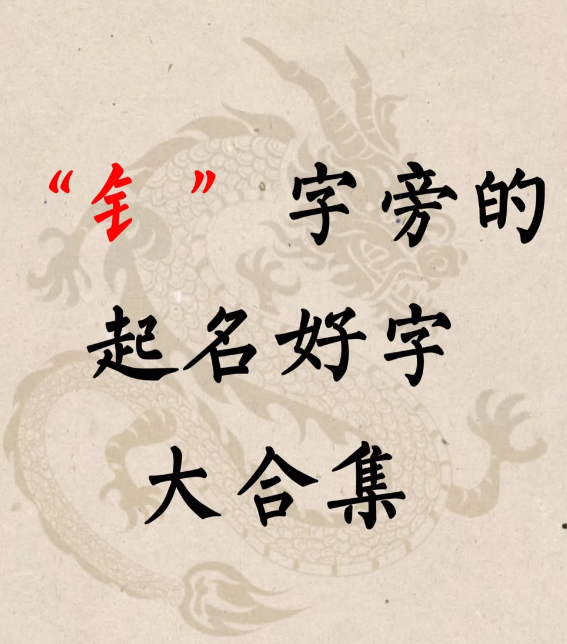 “钅”字旁的
起名好字
大合集